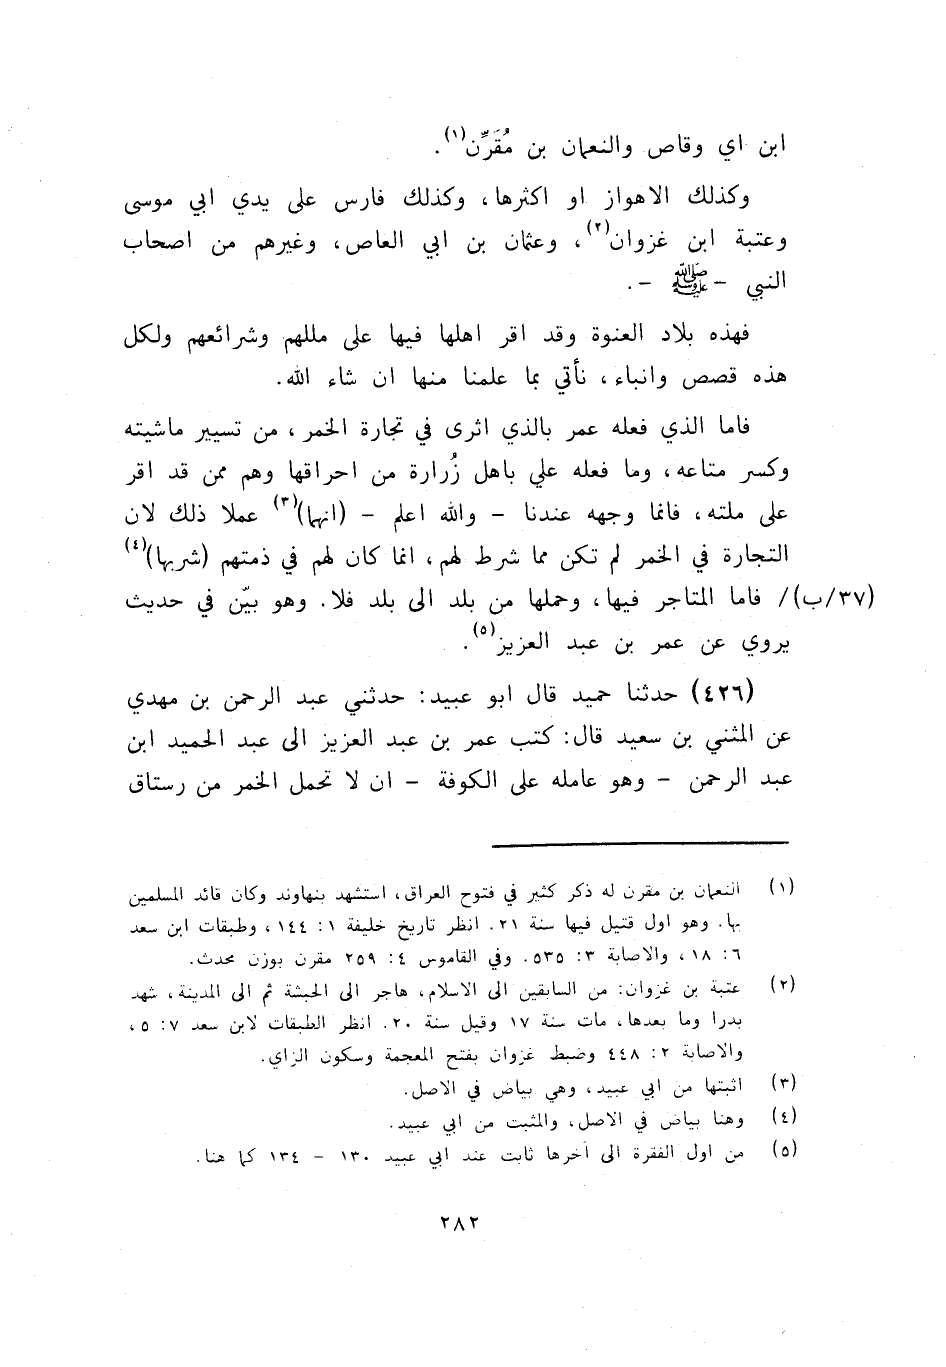 ابن اي وقاص والنعمان بن مُقَرِّن(١).
وكذلك الاهواز او اكثرها، وكذلك فارس على يدي ابي موسى
وعتبة ابن غزوان(٢)، وعثمان بن ابي العاص، وغيرهم من اصحاب
النبي - ﷺ - .
فهذه بلاد العنوة وقد اقر اهلها فيها على مللهم وشرائعهم ولكل
هذه قصص وانباء، نأتي بما علمنا منها ان شاء الله.
فاما الذي فعله عمر بالذي اثرى في تجارة الخمر، من تسيير ماشيته
وكسر متاعه، وما فعله علي باهل زُرارة من احراقها وهم ممن قد اقر
على ملته، فانما وجهه عندنا - والله اعلم - (انهما)(٣) عملا ذلك لان
التجارة في الخمر لم تكن مما شرط لهم، انما كان لهم في ذمتهم (شربها)(٤)
(٣٧/ب)/ فاما المتاجر فيها، وحملها من بلد الى بلد فلا. وهو بيّن في حديث
يروي عن عمر بن عبد العزيز(٥).
(٤٢٦) حدثنا حميد قال ابو عبيد: حدثني عبد الرحمن بن مهدي
عن المثني بن سعيد قال: كتب عمر بن عبد العزيز الى عبد الحميد ابن
عبد الرحمن - وهو عامله على الكوفة - ان لا تحمل الخمر من رستاق
(١) النعمان بن مقرن له ذكر كثير في فتوح العراق، استشهد بنهاوند وكان قائد المسلمين
بها. وهو اول قتيل فيها سنة ٢١. انظر تاريخ خليفة ١: ١٤٤، وطبقات ابن سعد
٦: ١٨، والاصابة ٣: ٥٣٥. وفي القاموس ٤: ٢٥٩ مقرن بوزن محدث.
(٢) عتبة بن غزوان: من السابقين الى الاسلام، هاجر الى الحبشة ثم الى المدينة، شهد
بدرا وما بعدها، مات سنة ١٧ وقيل سنة ٢٠. انظر الطبقات لابن سعد ٧: ٥،
والاصابة ٢: ٤٤٨ وضبط غزوان بفتح المعجمة وسكون الزاي.
(٣) اثبتها من ابي عبيد، وهي بياض في الاصل.
(٤) وهنا بياض في الاصل، والمثبت من ابي عبيد.
(٥) من اول الفقرة الى أخرها ثابت عند ابي عبيد ١٣٠ - ١٣٤ كما هنا.
٢٨٢